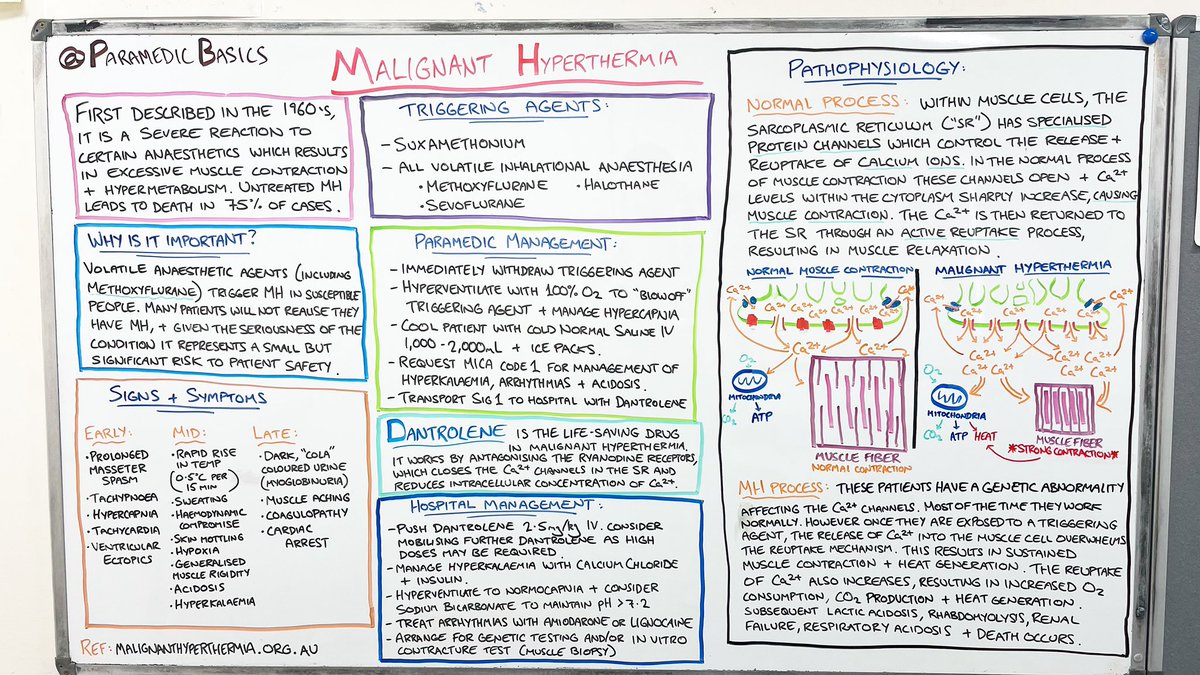 @ PARAMEDIC BASICS
MALIGNANT HYPERTHERMIA
FIRST DESCRIBED IN THE 1960's,
IT IS A SEVERE REACTION TO
CERTAIN ANAESTHETICS WHICH RESULTS
IN EXCESSIVE MUSCLE CONTRACTION
+ HYPERMETABOLISM. UNTREATED MH
LEADS TO DEATH IN 75% OF CASES.
WHY IS IT IMPORTANT?
VOLATILE ANAESTHETIC AGENTS (INCLUDING
METHOXYFLURANE) TRIGGER MH IN SUSCEPTIBLE
PEOPLE. MANY PATIENTS WILL NOT REALISE THEY
HAVE MH, + GIVEN THE SERIOUSNESS OF THE
CONDITION IT REPRESENTS A SMALL BUT
SIGNIFICANT RISK TO PATIENT SAFETY.
SIGNS + SYMPTOMS
EARLY:
• PROLONGED
MASSETER
SPASM
• TACHYPNOEA
• HYPERCAPNIA
• TACHYCARDIA
• VENTRICULAR
ECTOPICS
MID:
• RAPID RISE
IN TEMP
(0.5°C PER
15 MIN)
• SWEATING
• HAEMODYNAMIC
COMPROMISE
• SKIN MOTTLING
• HYPOXIA
• GENERALISED
MUSCLE RIGIDITY
• ACIDOSIS
• HYPERKALAEMIA
LATE:
• DARK, "COLA"
COLOURED URINE
(MYOGLOBINURIA)
• MUSCLE ACHING
• COAGULOPATHY
• CARDIAC
ARREST
REF: MALIGNANTHYPERTHERMIA.ORG.AU
TRIGGERING AGENTS:
- SUXAMETHONIUM
- ALL VOLATILE INHALATIONAL ANAESTHESIA
• METHOXYFLURANE • HALOTHANE
• SEVOFLURANE
PARAMEDIC MANAGEMENT:
- IMMEDIATELY WITHDRAW TRIGGERING AGENT
- HYPERVENTILATE WITH 100% O2 TO "BLOWOFF"
TRIGGERING AGENT + MANAGE HYPERCAPNIA
- COOL PATIENT WITH COLD NORMAL SALINE IV
1,000 - 2,000mL + ICE PACKS.
- REQUEST MICA CODE 1 FOR MANAGEMENT OF
HYPERKALAEMIA, ARRHYTHMIAS + ACIDOSIS.
- TRANSPORT SIG 1 TO HOSPITAL WITH DANTROLENE
DANTROLENE IS THE LIFE-SAVING DRUG
IN MALIGNANT HYPERTHERMIA.
IT WORKS BY ANTAGONISING THE RYANODINE RECEPTORS,
WHICH CLOSES THE Ca2+ CHANNELS IN THE SR AND
REDUCES INTRACELLULAR CONCENTRATION OF Ca2+.
HOSPITAL MANAGEMENT:
- PUSH DANTROLENE 2.5mg/kg IV. CONSIDER
MOBILISING FURTHER DANTROLENE AS HIGH
DOSES MAY BE REQUIRED.
- MANAGE HYPERKALAEMIA WITH CALCIUM CHLORIDE
+ INSULIN.
- HYPERVENTILATE TO NORMOCAPNIA + CONSIDER
SODIUM BICARBONATE TO MAINTAIN PH > 7.2
- TREAT ARRHYTHMIAS WITH AMIODARONE OR LIGNOCAINE
- ARRANGE FOR GENETIC TESTING AND/OR IN VITRO
CONTRACTURE TEST (MUSCLE BIOPSY)
PATHOPHYSIOLOGY:
NORMAL PROCESS: WITHIN MUSCLE CELLS, THE
SARCOPLASMIC RETICULUM ("SR") HAS SPECIALISED
PROTEIN CHANNELS WHICH CONTROL THE RELEASE +
REUPTAKE OF CALCIUM IONS. IN THE NORMAL PROCESS
OF MUSCLE CONTRACTION THESE CHANNELS OPEN + Ca2+
LEVELS WITHIN THE CYTOPLASM SHARPLY INCREASE, CAUSING
MUSCLE CONTRACTION. THE Ca2+ IS THEN RETURNED TO
THE SR THROUGH AN ACTIVE REUPTAKE PROCESS,
RESULTING IN MUSCLE RELAXATION.
NORMAL MUSCLE CONTRACTION
Ca2+ Ca2+
Ca2+ Ca2+ Ca2+ Ca2+
Ca2+ Ca2+
Ca2+
O2
MITOCHONDRIA
CO2 ATP
MUSCLE FIBER
NORMAL CONTRACTION
MALIGNANT HYPERTHERMIA
Ca2+ Ca2+
Ca2+ Ca2+ Ca2+ Ca2+
Ca2+ Ca2+
Ca2+ Ca2+ Ca2+
O2
MITOCHONDRIA
CO2 ATP HEAT
MUSCLE FIBER
*STRONG CONTRACTION*
MH PROCESS: THESE PATIENTS HAVE A GENETIC ABNORMALITY
AFFECTING THE Ca2+ CHANNELS. MOST OF THE TIME THEY WORK
NORMALLY. HOWEVER ONCE THEY ARE EXPOSED TO A TRIGGERING
AGENT, THE RELEASE OF Ca2+ INTO THE MUSCLE CELL OVERWHELMS
THE REUPTAKE MECHANISM. THIS RESULTS IN SUSTAINED
MUSCLE CONTRACTION + HEAT GENERATION. THE REUPTAKE
OF Ca2+ ALSO INCREASES, RESULTING IN INCREASED O2
CONSUMPTION, CO2 PRODUCTION + HEAT GENERATION.
SUBSEQUENT LACTIC ACIDOSIS, RHABDOMYOLYSIS, RENAL
FAILURE, RESPIRATORY ACIDOSIS + DEATH OCCURS.